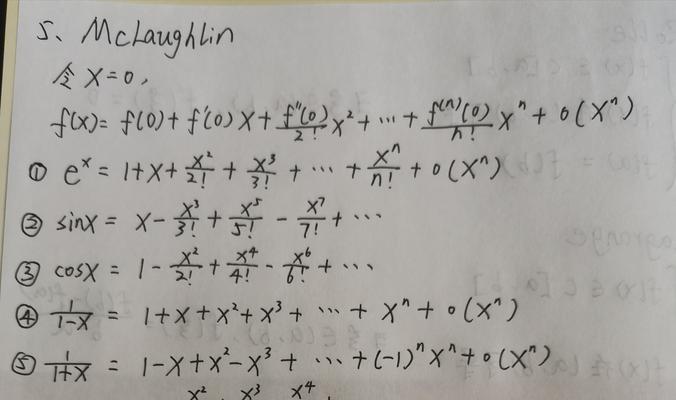 5、McLaughlin
令 X=0,
f(x)= f(0)+f'(0)X+\frac{f''(0)}{2!}X²+⋯+\frac{f^{(n)}(0)}{n!}Xⁿ+o(Xⁿ)
① eˣ = 1+X+\frac{X²}{2!}+\frac{X³}{3!}+⋯+\frac{Xⁿ}{n!}+o(Xⁿ)
② sinx = X-\frac{X³}{3!}+\frac{X⁵}{5!}-\frac{X⁷}{7!}+⋯
③ cosx = 1-\frac{X²}{2!}+\frac{X⁴}{4!}-\frac{X⁶}{6!}+⋯
④ \frac{1}{1-X} = 1+X+X²+X³+⋯+Xⁿ+o(Xⁿ)
⑤ \frac{1}{1+X} = 1-X+X²-X³+⋯+(-1)ⁿXⁿ+o(Xⁿ)
X² X³ X⁴